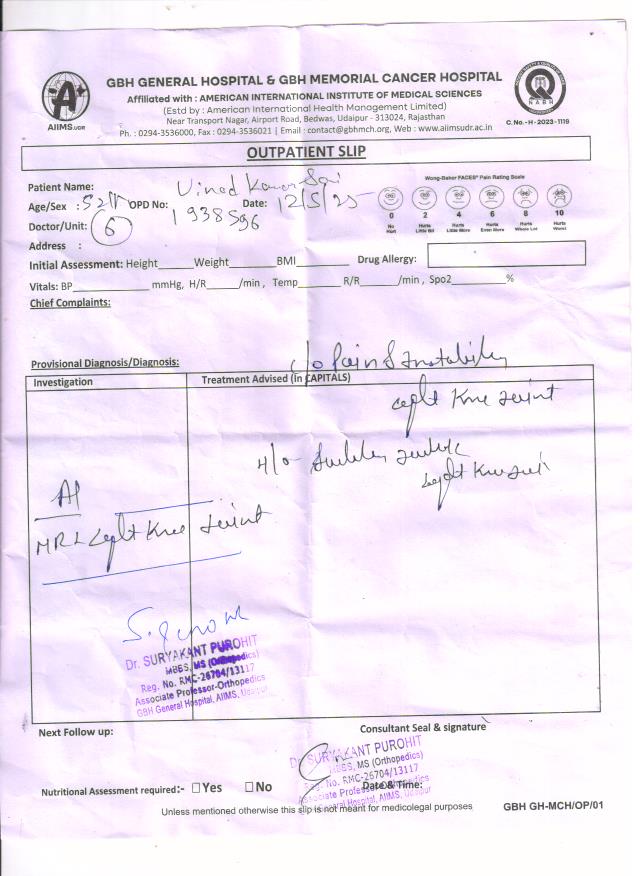 GBH GENERAL HOSPITAL & GBH MEMORIAL CANCER HOSPITAL
Affiliated with : AMERICAN INTERNATIONAL INSTITUTE OF MEDICAL SCIENCES
(Estd by : American International Health Management Limited)
Near Transport Nagar, Airport Road, Bedwas, Udaipur - 313024, Rajasthan
Ph. : 0294-3536000, Fax : 0294-3536021 | Email : contact@gbhmch.org, Web : www.aiimsudr.ac.in
AIIMS.UDR
NABH
C.No.-H-2023-1119
OUTPATIENT SLIP
Patient Name: Vinod
Age/Sex : 52/M OPD No: 1938596 Date: 12/5/25
Doctor/Unit: 6
Address :
Wong-Baker FACES® Pain Rating Scale
0 2 4 6 8 10
No Hurt Hurts Little Bit Hurts Little More Hurts Even More Hurts Whole Lot Hurts Worst
Initial Assessment: Height______Weight________BMI_________ Drug Allergy:
Vitals: BP____________ mmHg, H/R______/min , Temp_______ R/R______/min , Spo2_________%
Chief Complaints:
c/o Pain & Instability
Provisional Diagnosis/Diagnosis:
Investigation Treatment Advised (in CAPITALS)
Knee Joint
H/o
Knee
MRI Knee Joint
Dr. SURYAKANT PUROHIT
MBBS, MS (Orthopedics)
Reg. No. RMC-26704/13117
Associate Professor-Orthopedics
GBH General Hospital, AIIMS, Udaipur
Next Follow up: Consultant Seal & signature
Dr. SURYAKANT PUROHIT
MBBS, MS (Orthopedics)
Reg. No. RMC-26704/13117
Associate Professor-Orthopedics
General Hospital, AIIMS, Udaipur
Nutritional Assessment required:- ☐Yes ☐No Date & Time:
Unless mentioned otherwise this slip is not meant for medicolegal purposes GBH GH-MCH/OP/01